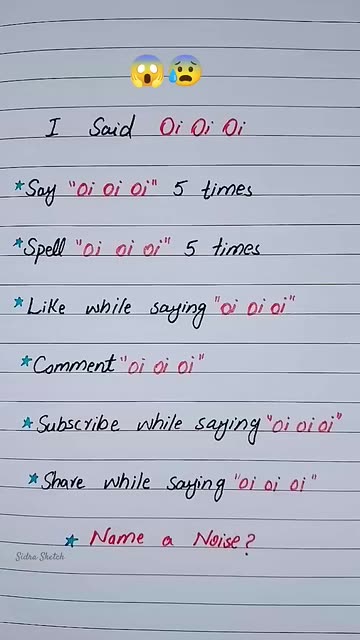 I Said Oi Oi Oi
*Say "oi oi oi" 5 times
*Spell "oi oi oi" 5 times
*Like while saying "oi oi oi"
*Comment "oi oi oi"
*Subscribe while saying "oi oi oi"
*Share while saying "oi oi oi"
* Name a Noise?
Sidra Sketch